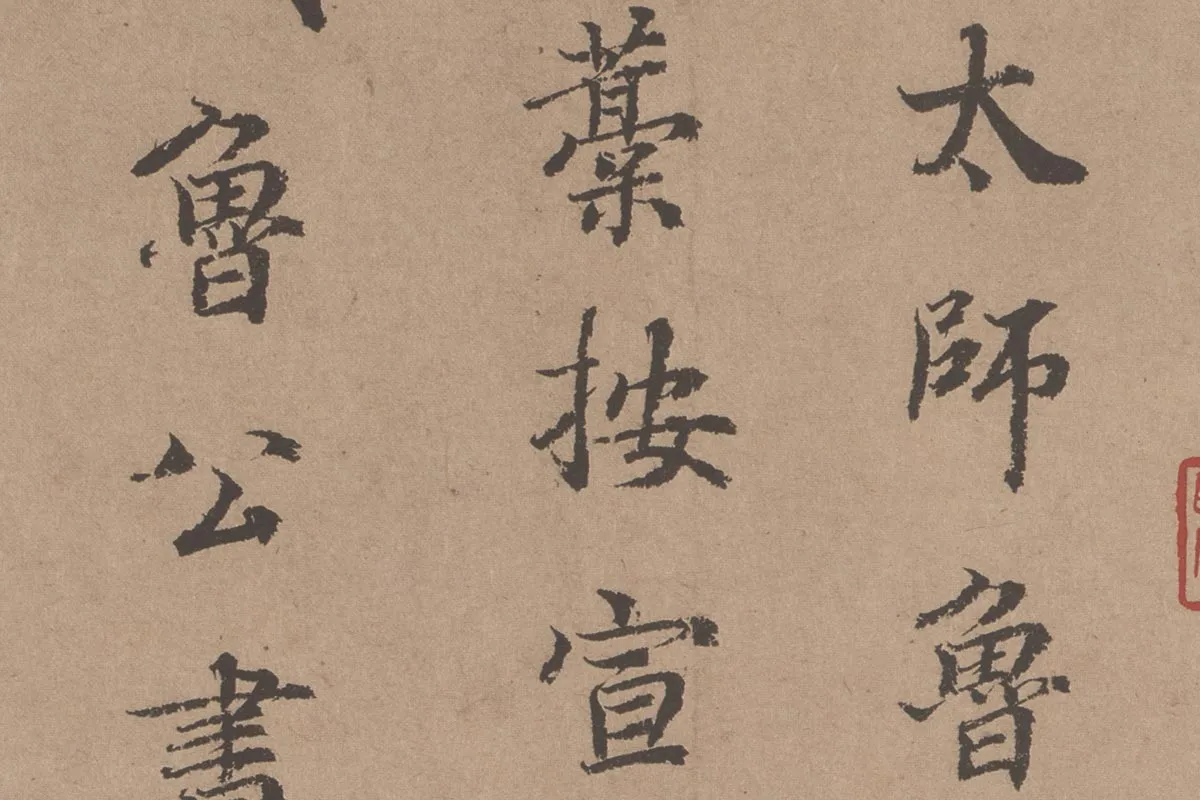 太師魯
藁按宣
魯公書